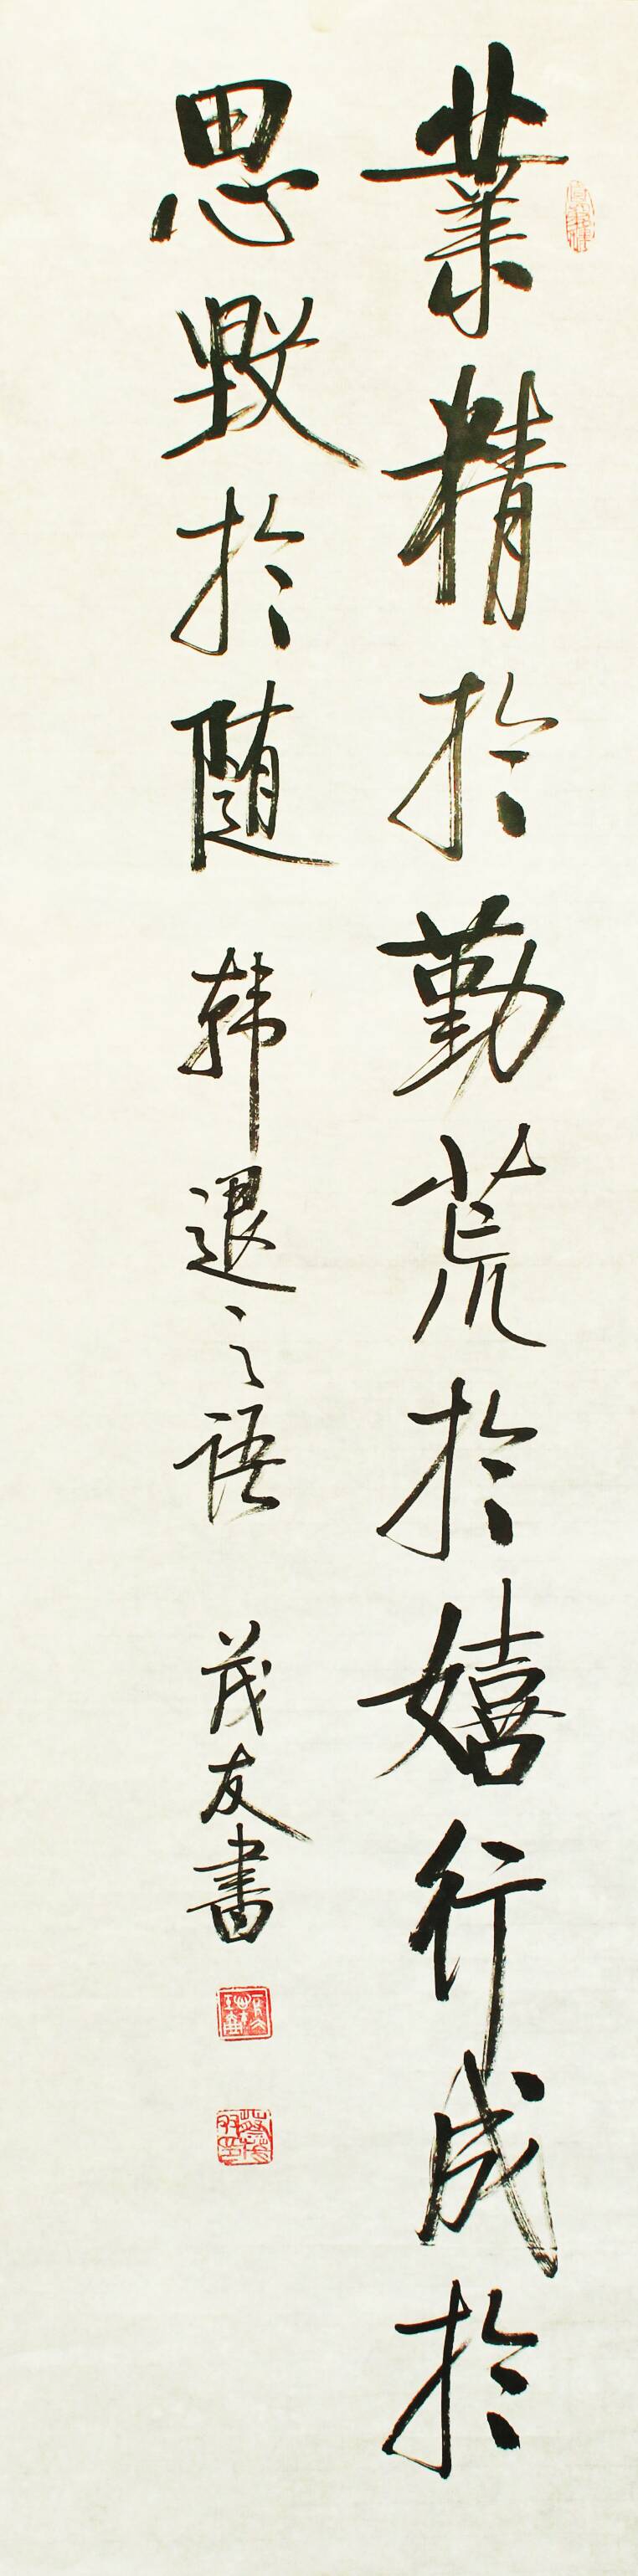 業精於勤荒於嬉行成於
思毀於随 韩退之语 茂友書